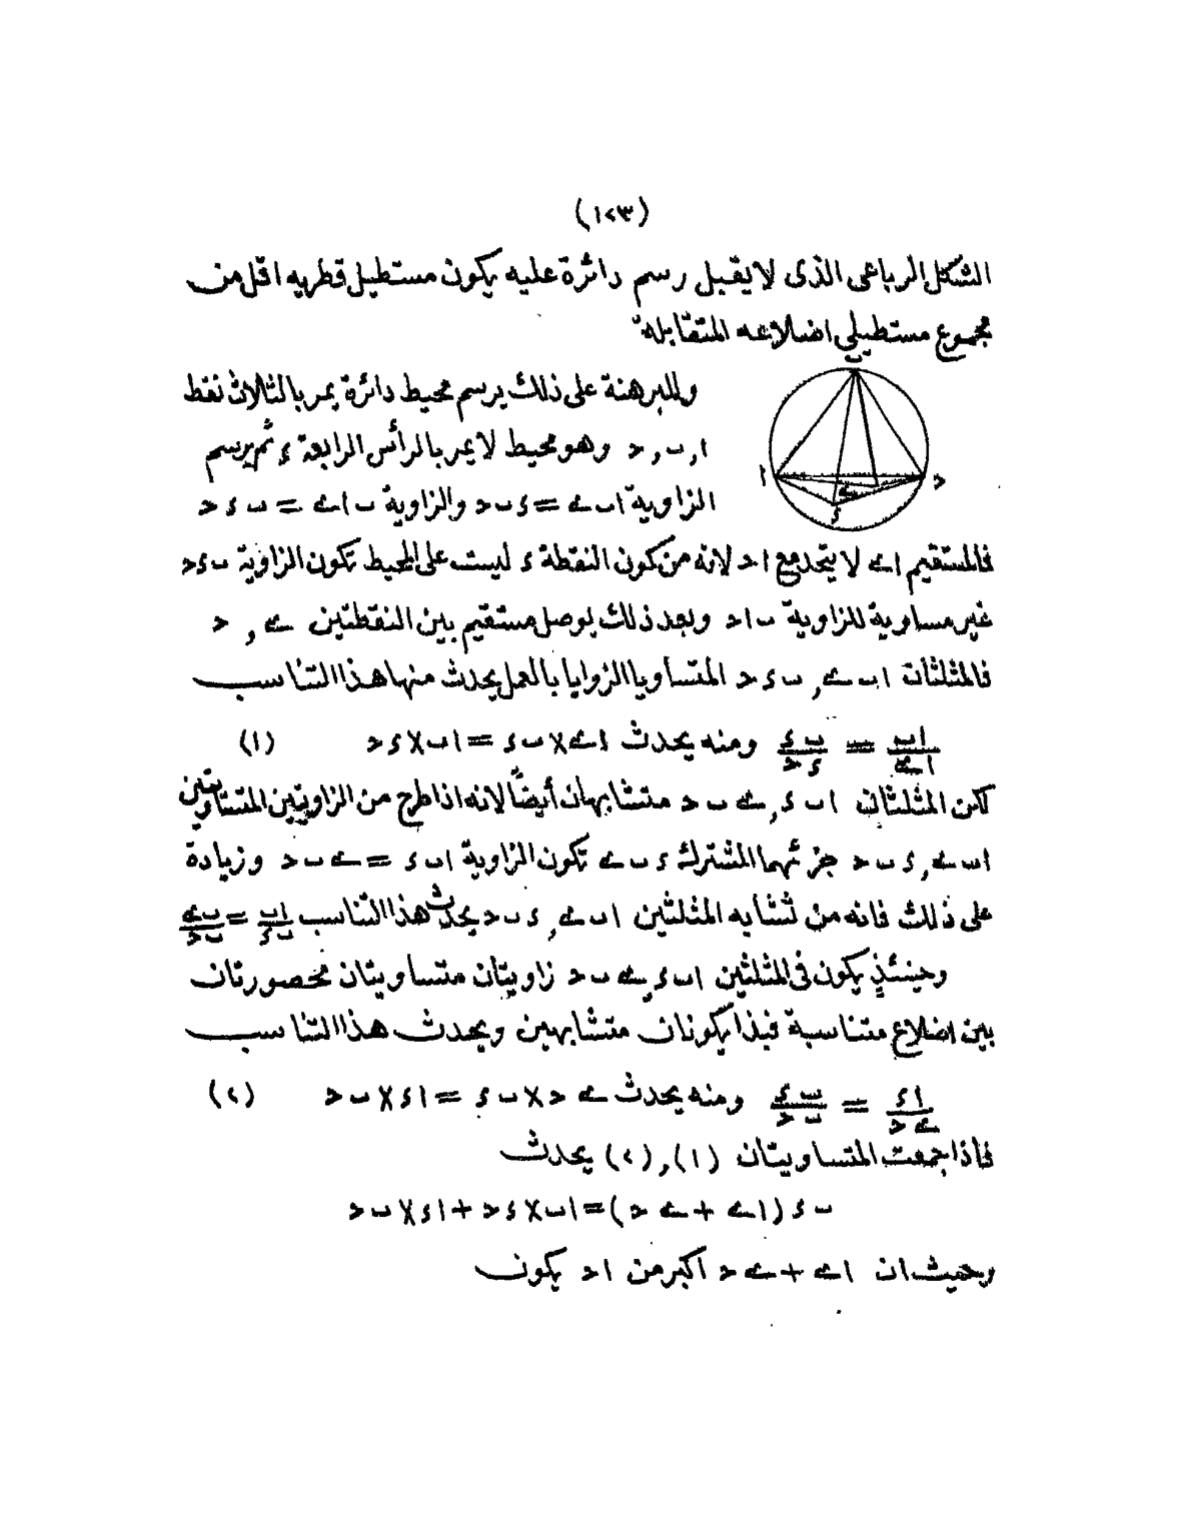 (١٢٣)
الشكل الرباعى الذى لا يقبل رسم دائرة عليه يكون مستطيل قطريه اقل من
مجموع مستطيلي اضلاعه المتقابلة
وللبرهنة على ذلك يرسم محيط دائرة يمر بالثلاث نقط
ا , ب , د وهو محيط لا يمر بالرأس الرابعة ء ثم يرسم
الزاوية ا ب ے = ء ب د والزاوية ب ا ے = ب ء د
فالمستقيم ا ے لا يتحد مع ا د لانه من كون النقطة ء ليست على المحيط تكون الزاوية ب ء د
غير مساوية للزاوية ب ا د وبعد ذلك يوصل مستقيم بين النقطتين ے , د
فالمثلثات ا ب ے , ب ء د المتساويا الزوايا بالعمل يحدث منها هذا التناسب
ا ب / ا ے = ب ء / ء د ومنه يحدث ا ے × ب ء = ا ب × ء د (١)
لكن المثلثان ا ب ء , ے ب د متشابهان أيضًا لانه اذا طرح من الزاويتين المتساويتين
ا ب ے , ء ب د جزئهما المشترك ء ب ے تكون الزاوية ا ب ء = ے ب د وزيادة
على ذلك فانه من تشابه المثلثين ا ب ے , ء ب د يحدث هذا التناسب ا ب / ب ء = ب ے / ب د
وحينئذٍ يكون فى المثلثين ا ب ء , ے ب د زاويتان متساويتان محصورتان
بين اضلاع متناسبة فبذا يكونان متشابهين ويحدث هذا التناسب
ا ء / ے د = ب ء / ب د ومنه يحدث ے د × ب ء = ا ء × ب د (٢)
فاذا جمعت المتساويتان (١) , (٢) يحدث
ب ء (ا ے + ے د) = ا ب × ء د + ا ء × ب د
وحيث ان ا ے + ے د اكبر من ا د يكون
ب
ا
د
ے
ء